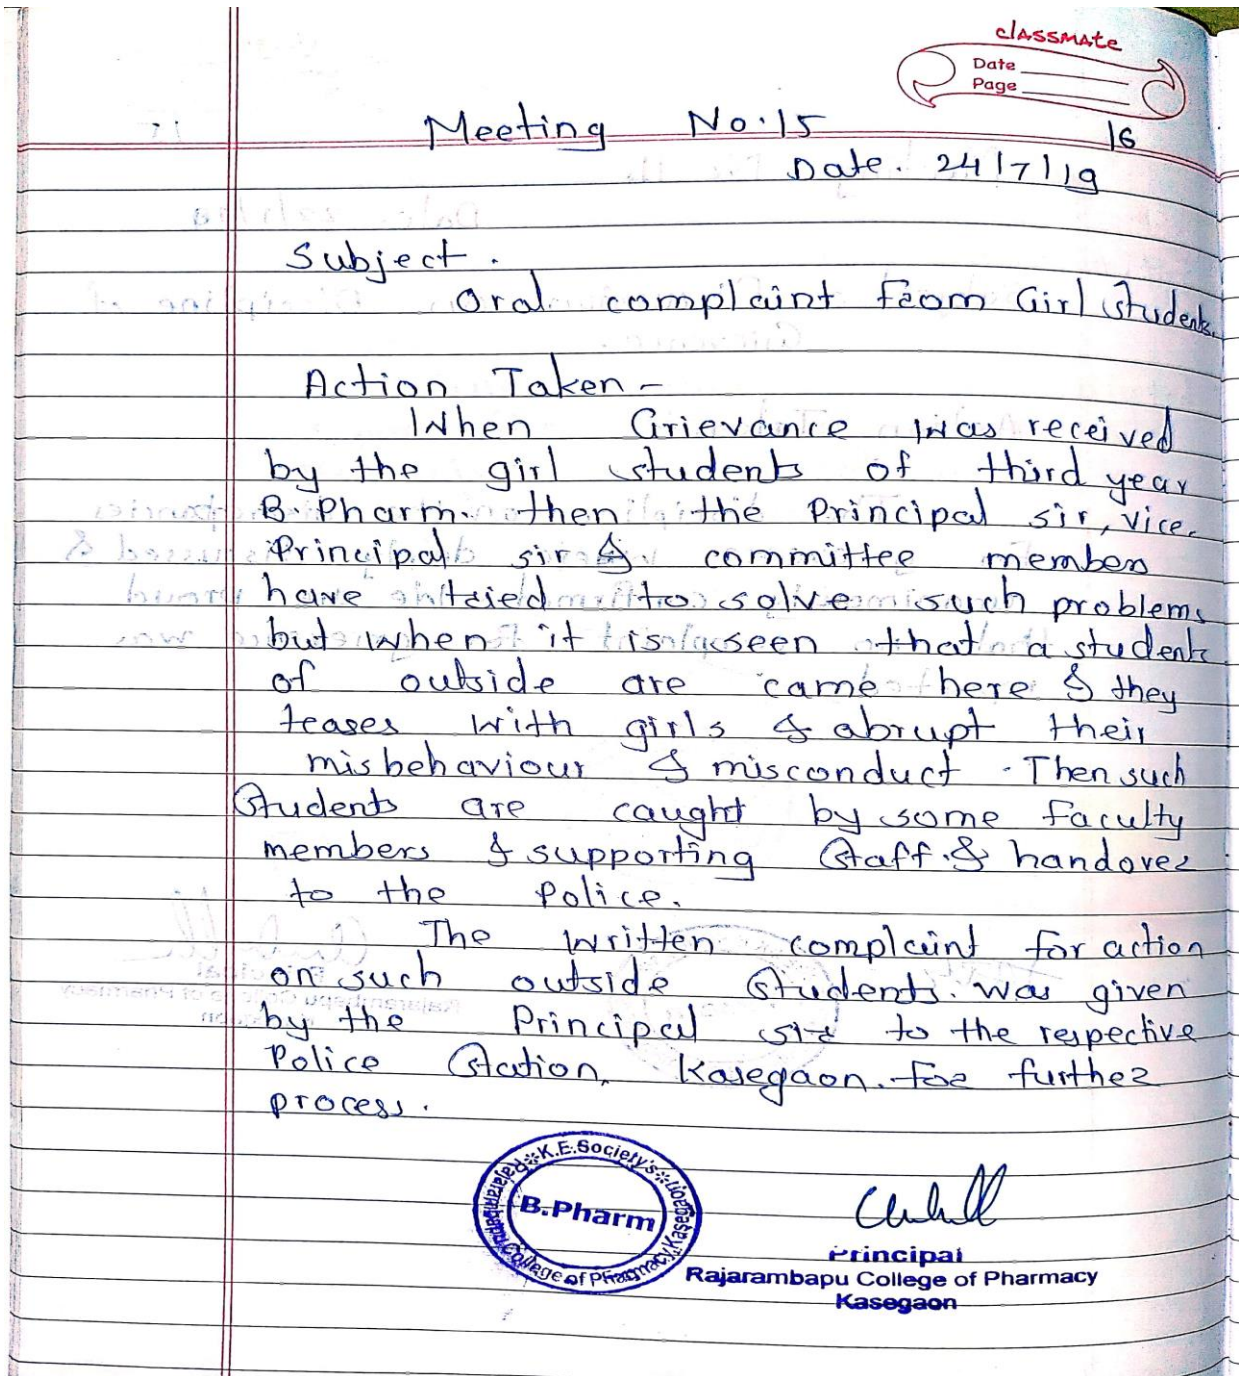 classmate
Date
Page
16
Meeting No.15
Date. 24/7/19
Subject.
Oral complaint from Girl Students.
Action Taken -
When Grievance was received
by the girl students of third year
B.Pharm. then the Principal sir, vice.
Principal sir & committee members
have tried to solve such problems
but when it is seen that a students
of outside are came here & they
teases with girls & abrupt their
misbehaviour & misconduct. Then such
Students are caught by some faculty
members & supporting Staff. & handover
to the Police.
The written complaint for action
on such outside students. was given
by the Principal sir to the respective
Police Station, Kasegaon. for further
process.
K.E.Society's
Rajarambapu College of Pharmacy, Kasegaon
B.Pharm
Principal
Rajarambapu College of Pharmacy
Kasegaon